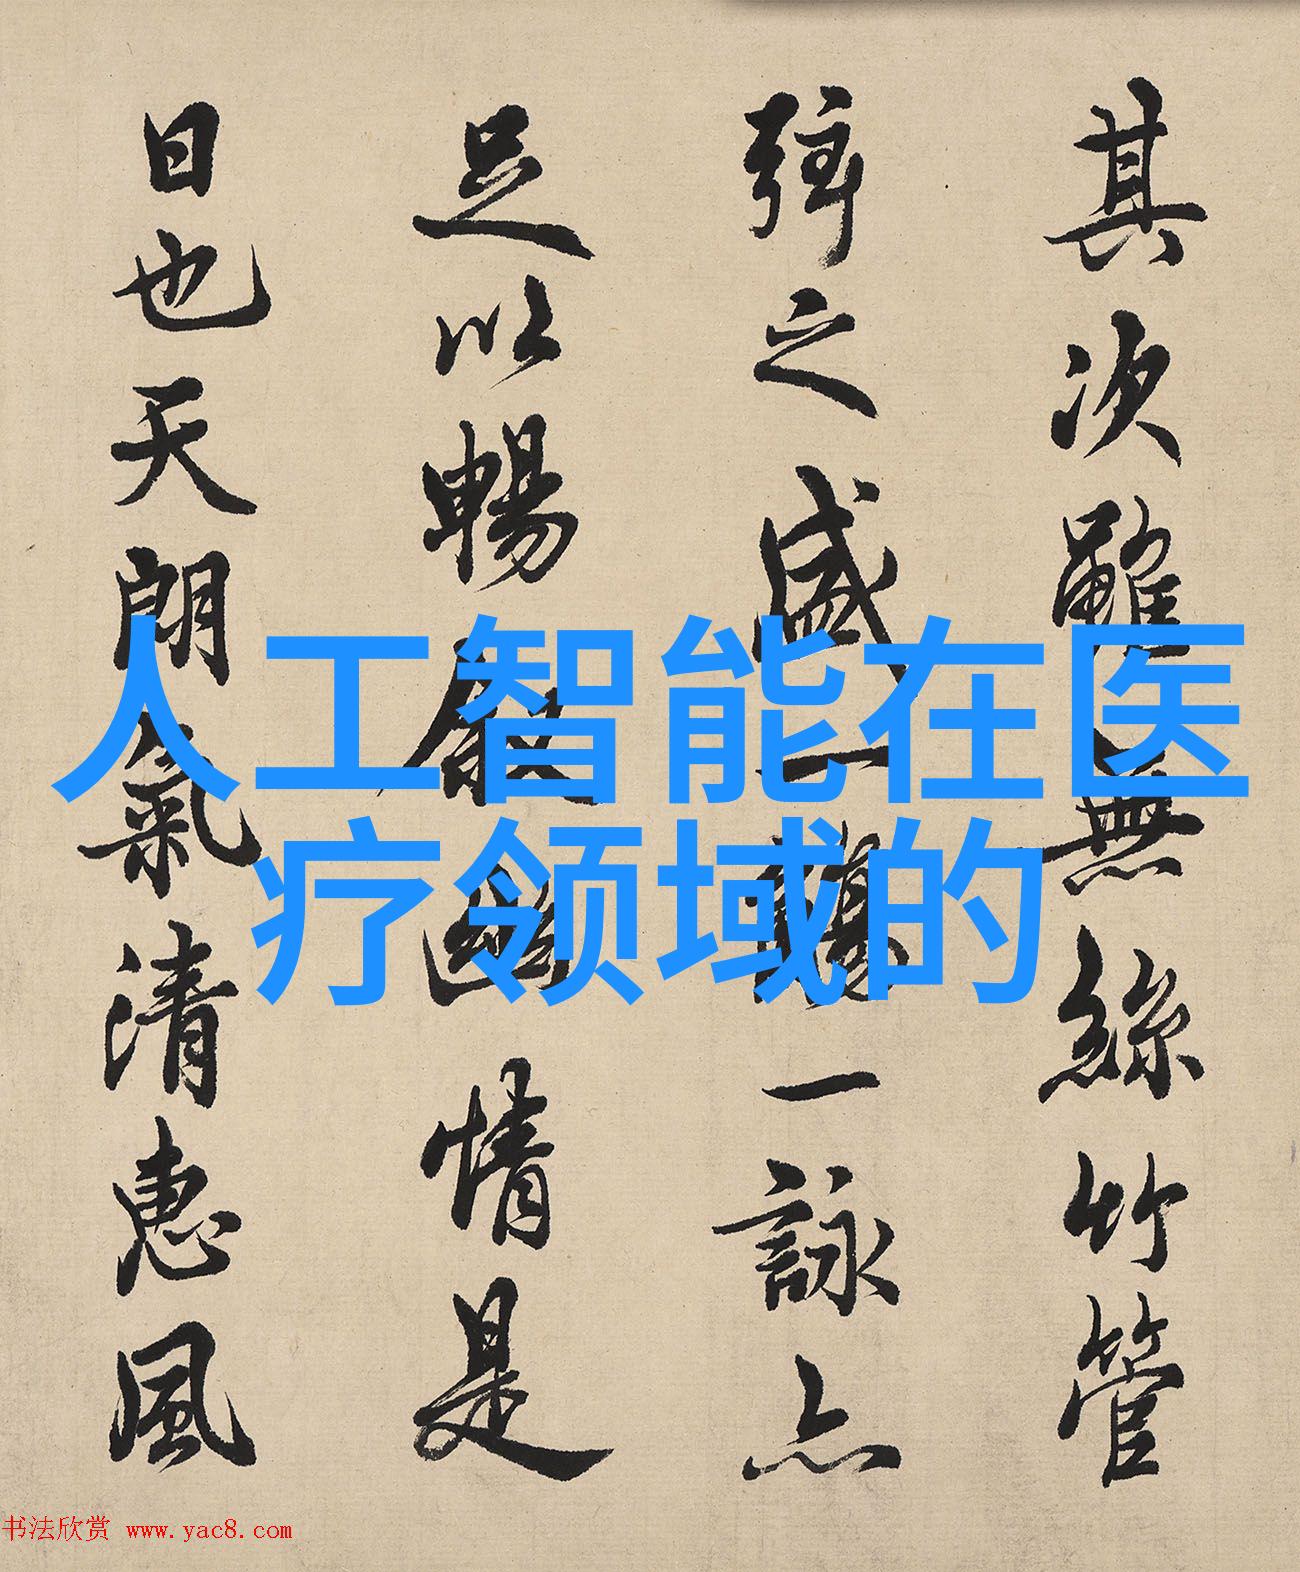 其次雖無絲竹管
弦之盛一觴一詠亦
足以暢敘幽情是
日也天朗氣清惠風
人工智能在医
疗领域的
书法欣赏 www.yac8.com